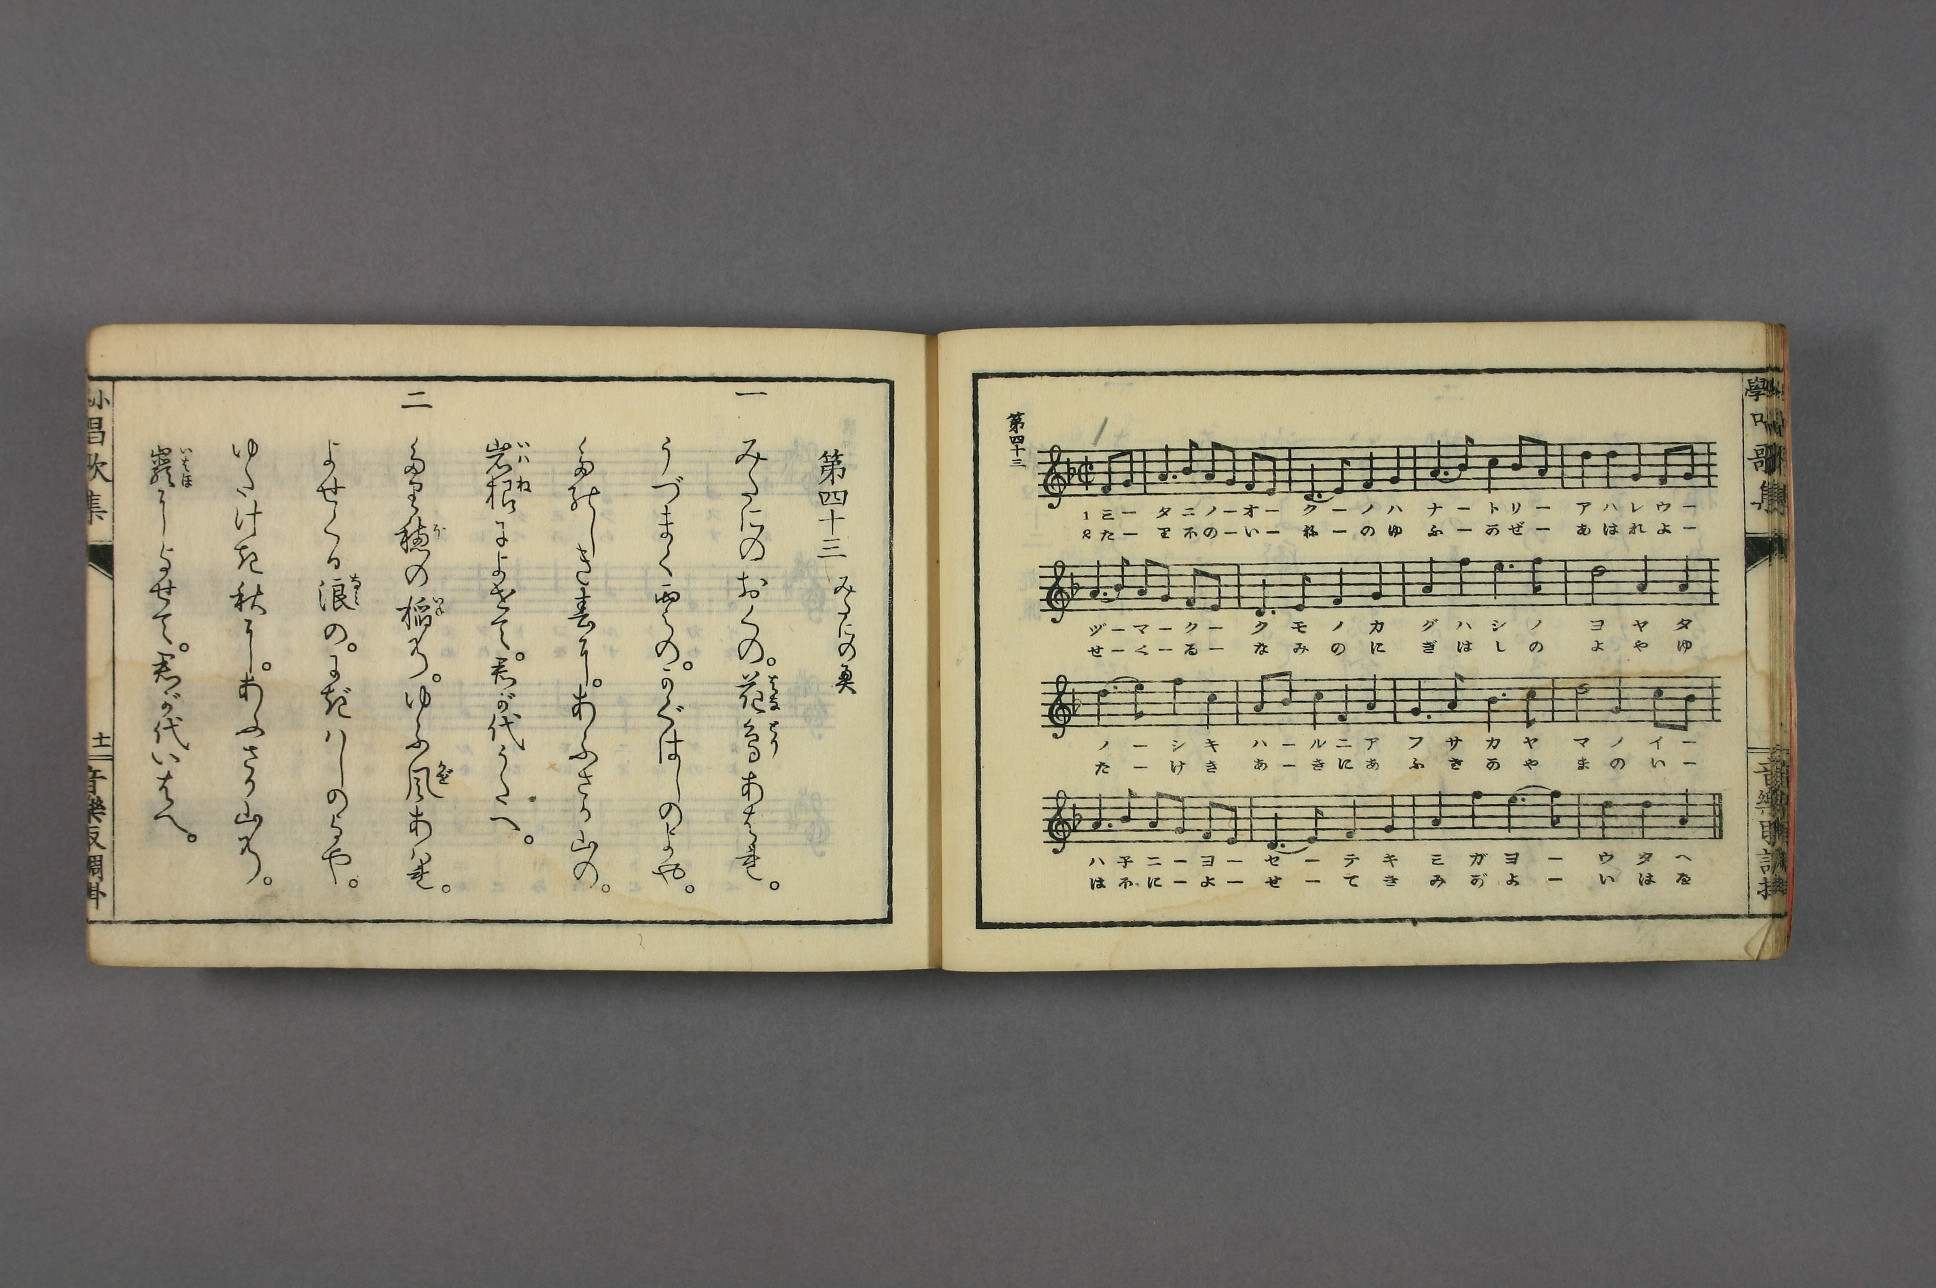 第四十三
1 ミータニノーオークーノハナートリーアハレウー
2 たーりほのーいーねーのゆふーかぜーあはれよー
ヅーマークークモノカグハシノヨヤタ
せーくるーなみのにぎはしのよやゆ
ノーシキハールニアフサカヤマノイー
たーけきあーきにあふさかやまのいー
ハ子ニーヨーセーテキミガヨーウタヘ
はほにーよーせーてきみがよーいはへ
第四十三 みたにの奥
一 みたにのおくの。花鳥あはれ。
うづまく雲の。かぐはしのよや。
たのしき春に。あふさか山の。
岩根によせて。君が代うたへ。
二 たり穂の稲の。ゆふ風あはれ。
よせくる浪の。にぎはしのよや。
ゆたけき秋に。あふさか山の。
巖によせて。君が代いはへ。
唱歌集
十一